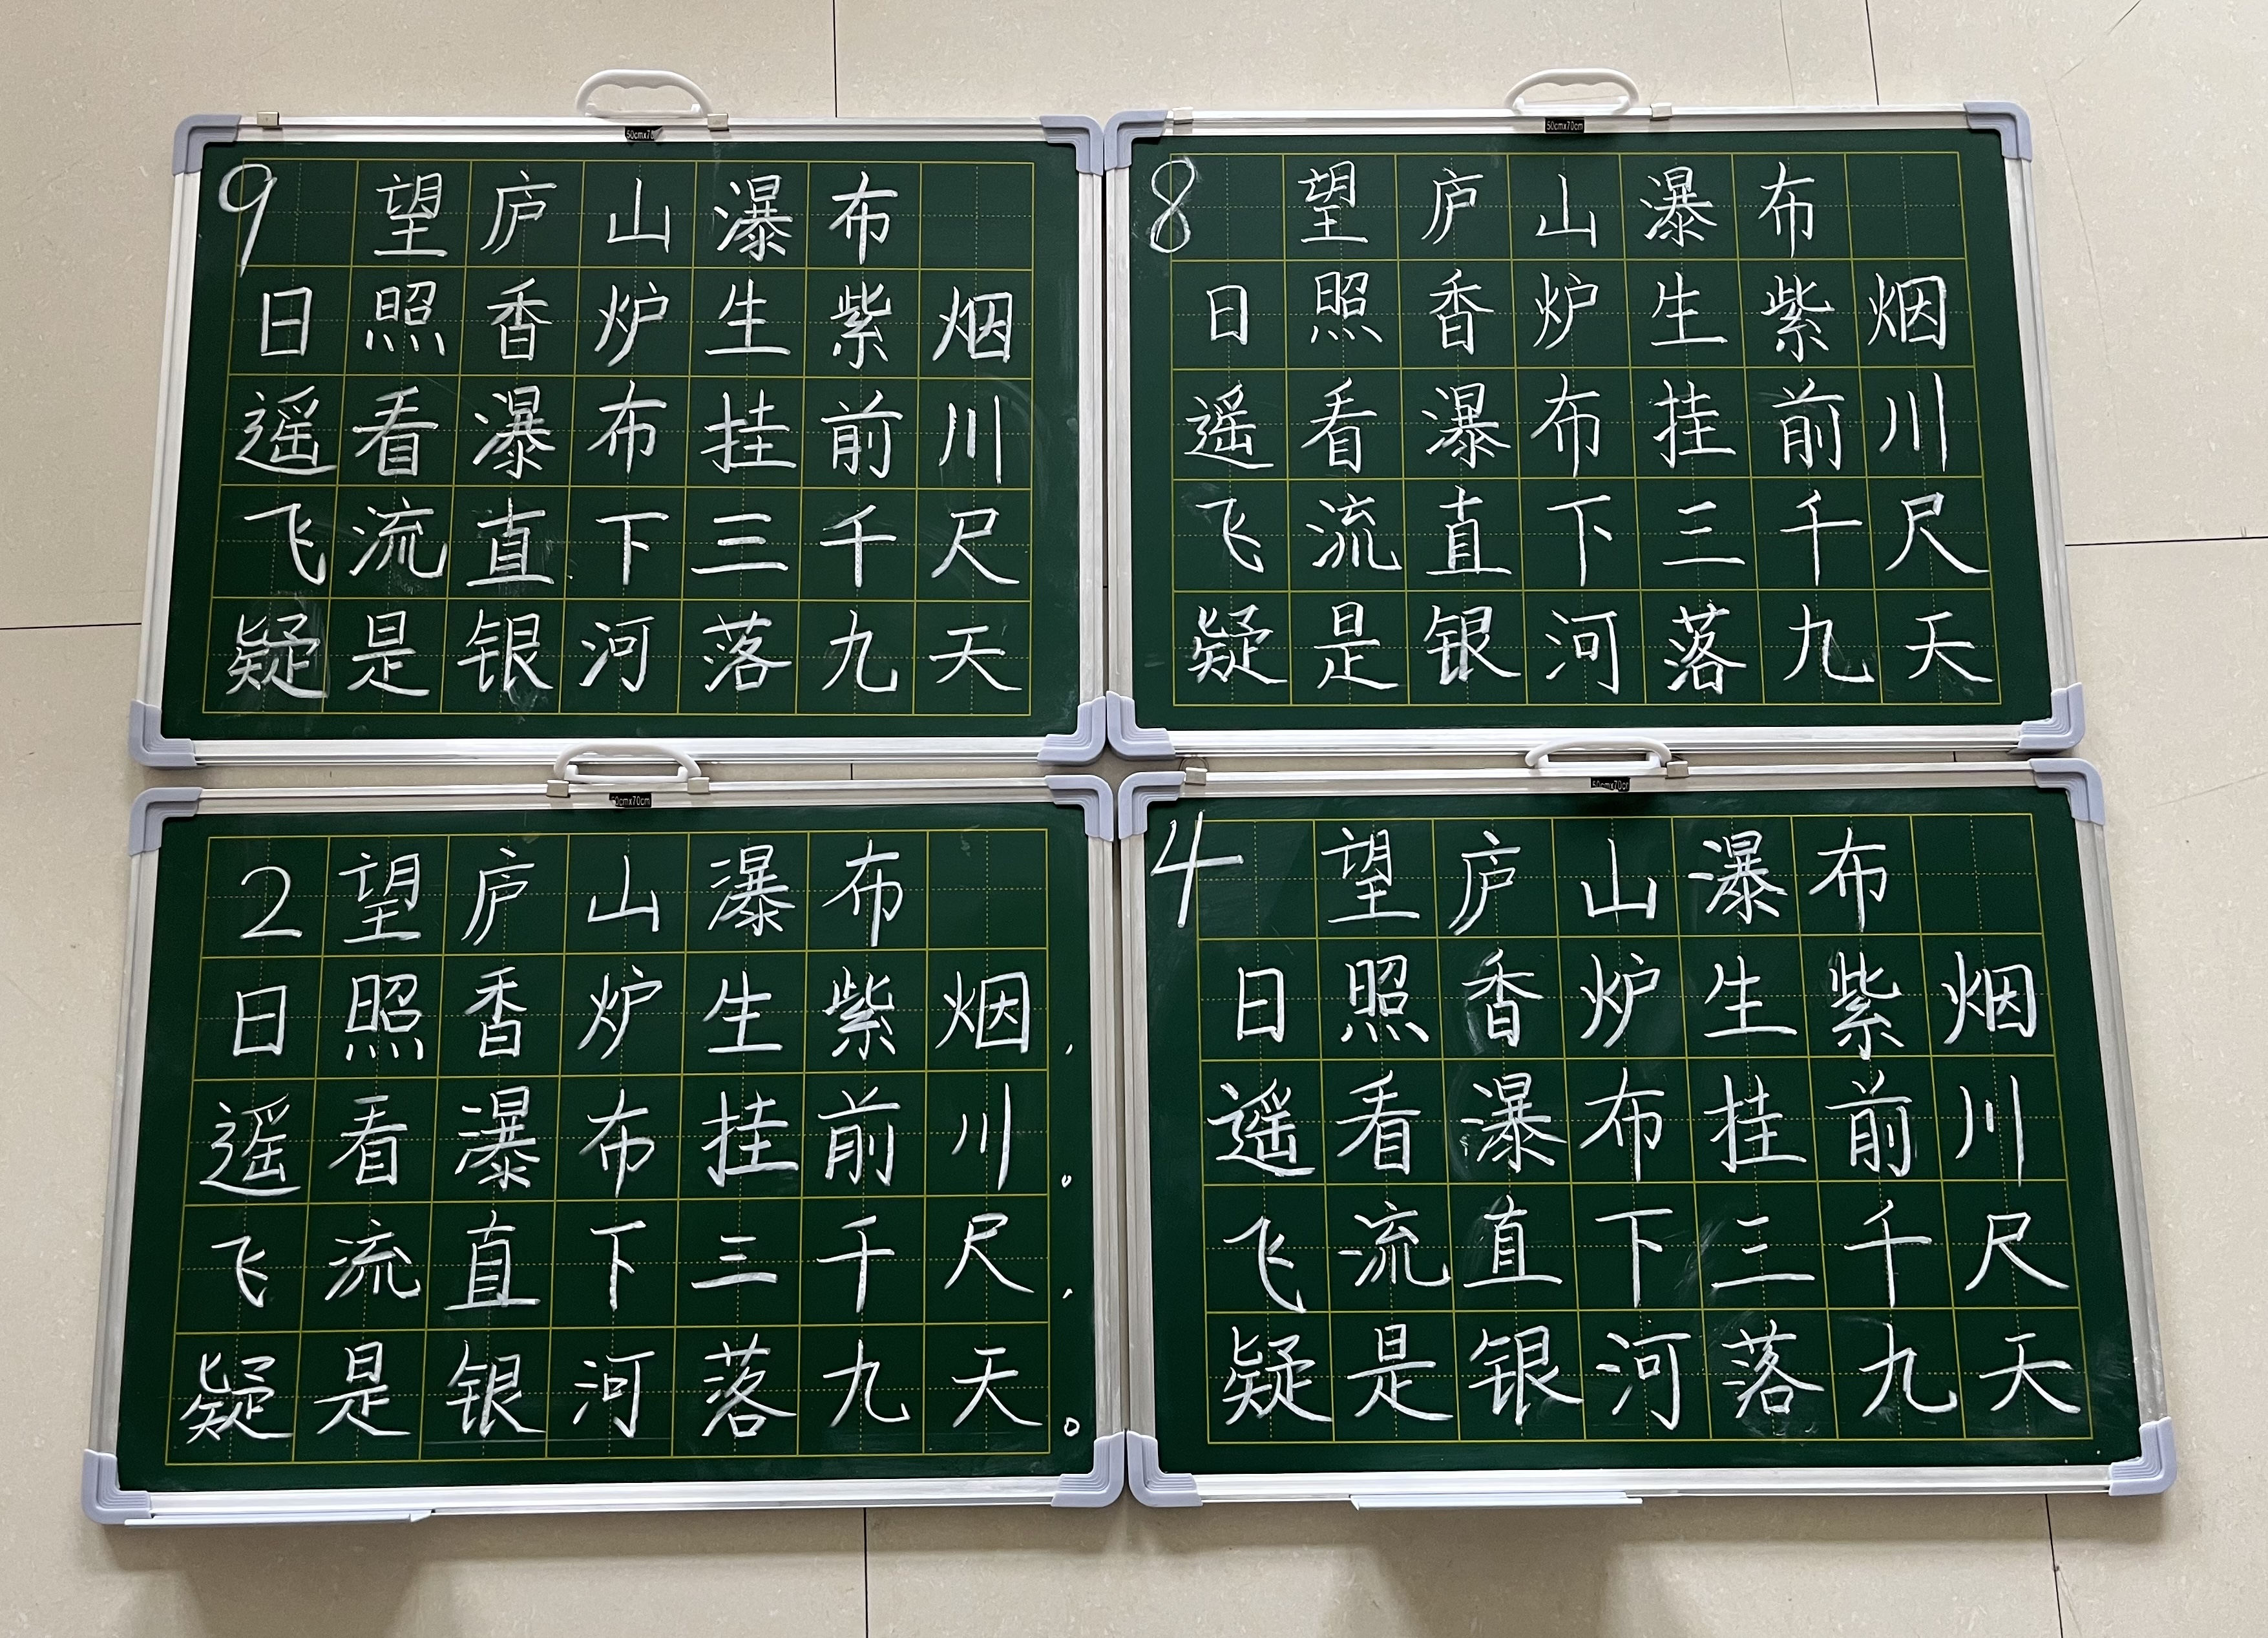 50cmx70
9 望庐山瀑布
日照香炉生紫烟
遥看瀑布挂前川
飞流直下三千尺
疑是银河落九天
50cmx70cm
8 望庐山瀑布
日照香炉生紫烟
遥看瀑布挂前川
飞流直下三千尺
疑是银河落九天
50cmx70cm
2 望庐山瀑布
日照香炉生紫烟，
遥看瀑布挂前川。
飞流直下三千尺，
疑是银河落九天。
50cmx70cm
4 望庐山瀑布
日照香炉生紫烟
遥看瀑布挂前川
飞流直下三千尺
疑是银河落九天